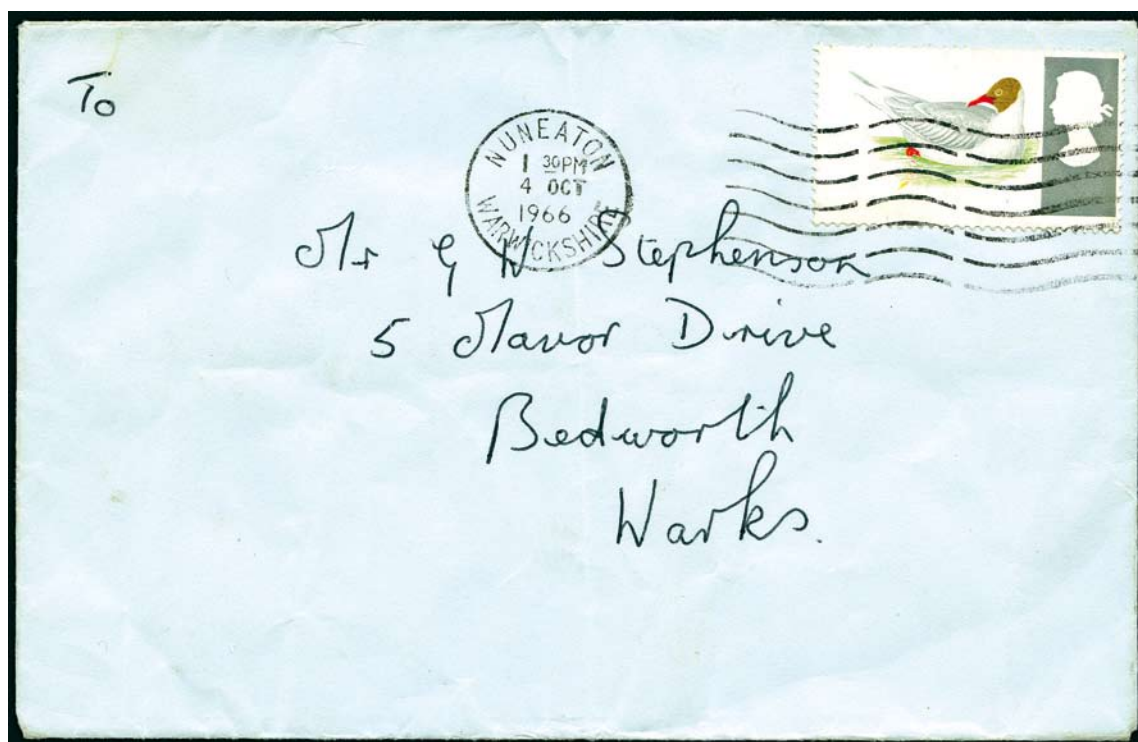 To
NUNEATON
1 30PM
4 OCT
1966
WARWICKSHIRE
Mr G W Stephenson
5 Manor Drive
Bedworth
Warks.